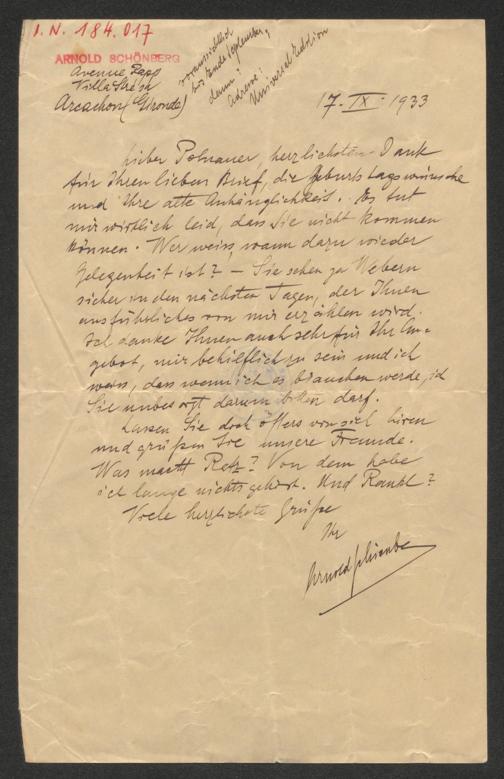 I.N. 184.017
ARNOLD SCHÖNBERG
Avenue Rapp
Villa Stresa
Arcachon (Gironde)
voraussichtlich
bis Ende September,
dann:
Adresse:
Universal Edition
17. IX. 1933
Lieber Polnauer, herzlichsten Dank
für Ihren lieben Brief, die Geburtstagswünsche
und Ihre alte Anhänglichkeit. Es tut
mir wirklich leid, dass Sie nicht kommen
können. Wer weiss, wann dazu wieder
Gelegenheit ist? – Sie sehen ja Webern
sicher in den nächsten Tagen, der Ihnen
ausführliches von mir erzählen wird.
Ich danke Ihnen auch sehr für Ihr An-
gebot, mir behilflich zu sein und ich
weiss, dass wenn ich es brauchen werde, ich
Sie unbesorgt darum bitten darf.
Lassen Sie doch öfters von sich hören
und grüßen Sie unsere Freunde.
Was macht Ratz? Von dem habe
ich lange nichts gehört. Und Rankl?
Viele herzlichste Grüße
Ihr
Arnold Schönberg